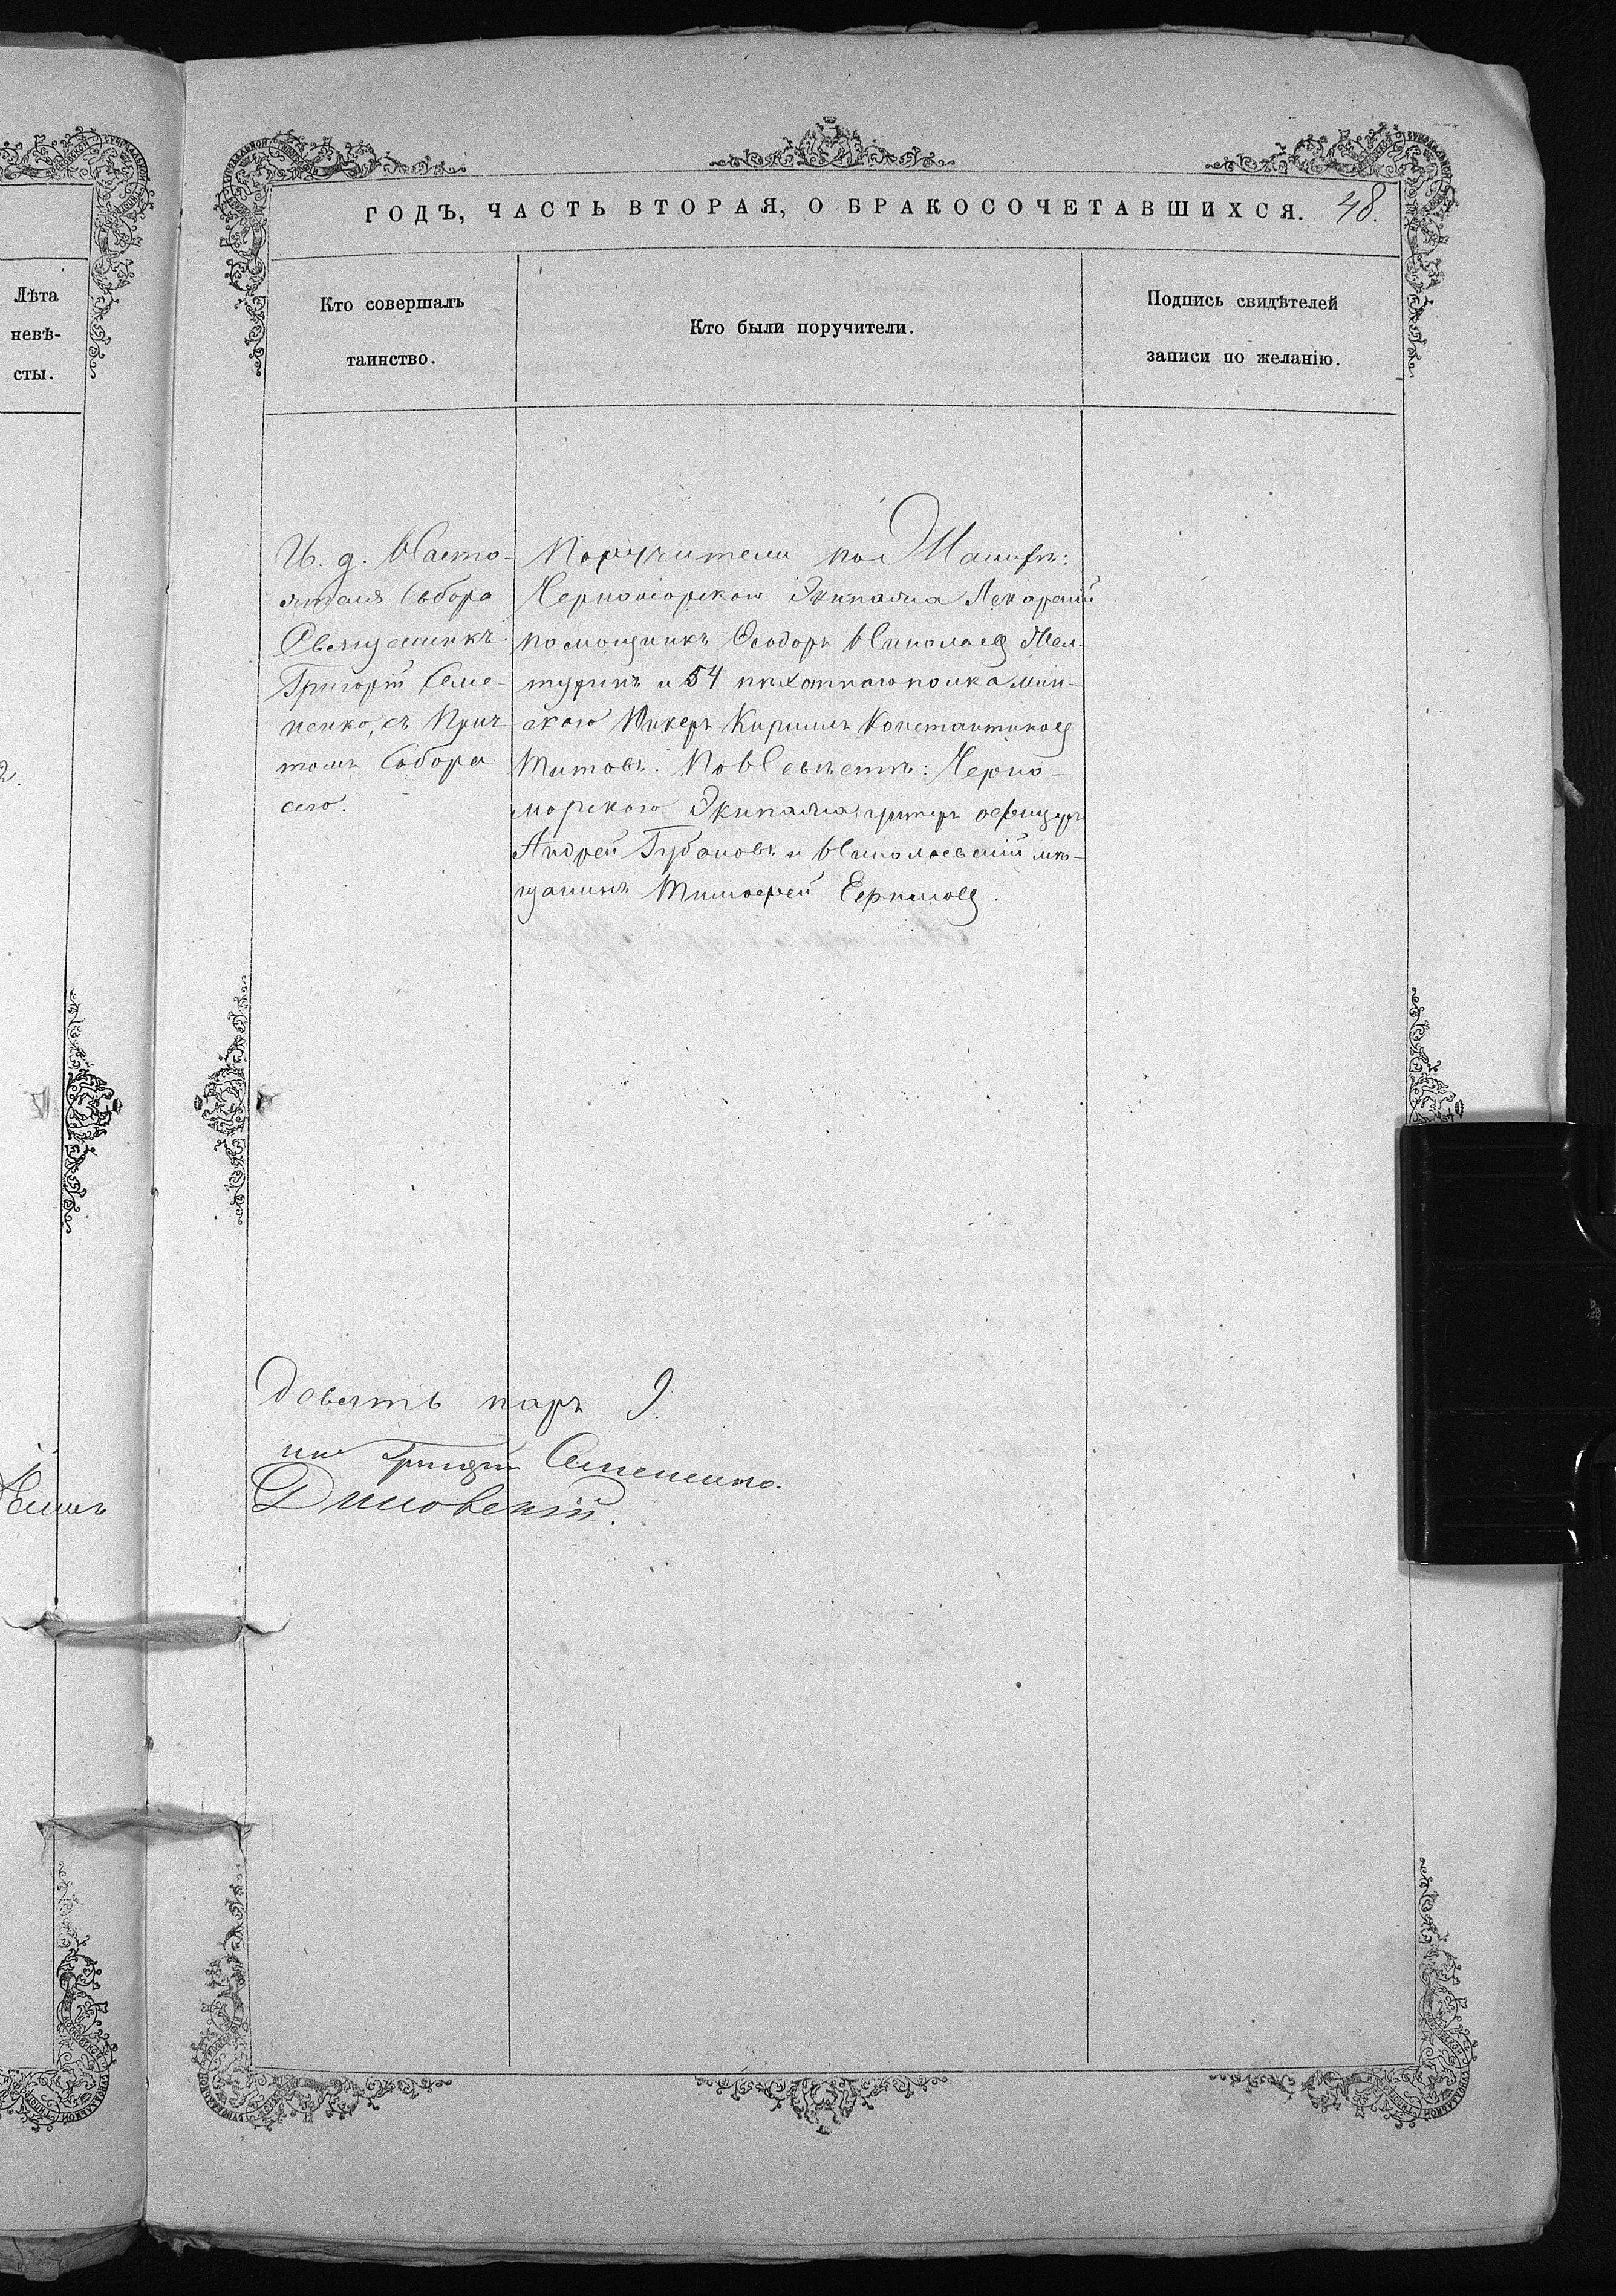 ГОДЪ, ЧАСТЬ ВТОРАЯ, О БРАКОСОЧЕТАВШИХСЯ. 48.
Лѣта
невѣ-
сты.
Кто совершалъ
таинство.
Кто были поручители.
Подпись свидѣтелей
записи по желанію.
И. д. Насто-
ятеля Собора
Священникъ
Григорій Семе-
ненко, съ Прич-
томъ Собора
сего.
Поручители по Женихѣ:
Черноморскаго Экипажа Лекарскій
помощникъ Ѳеодоръ Николаевъ
и 54 пѣхотнаго полка Мин-
скаго Юнкеръ Кириллъ Константиновъ
Титовъ. По Невѣстѣ: Черно-
морскаго Экипажа унтеръ офицеръ
Андрей Губановъ и Николаевскій мѣ-
щанинъ Тимофей Ермиловъ.
девять паръ 9.
Григорій Семененко.